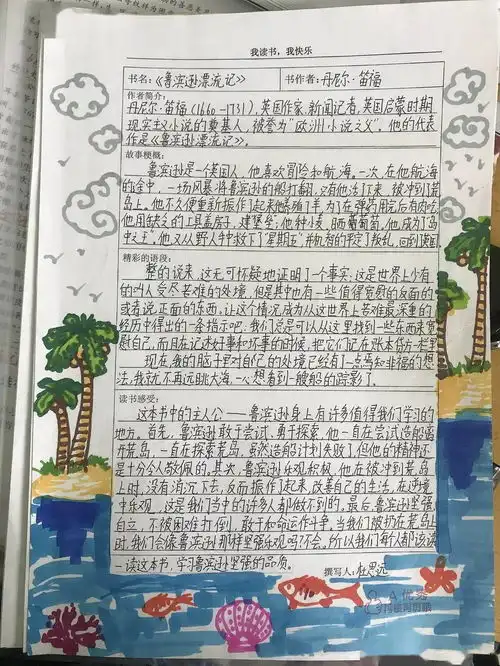 我读书，我快乐
书名：《鲁滨逊漂流记》 书作者：丹尼尔·笛福
作者简介：
丹尼尔·笛福(1660-1731)，英国作家，新闻记者，英国启蒙时期
现实主义小说的奠基人，被誉为“欧洲小说之父”，他的代表
作是《鲁滨逊漂流记》。
故事梗概：
鲁滨逊是一英国人，他喜欢冒险和航海。一次，在他航海
的途中，一场风暴将鲁滨逊的船打翻，只有他活了下来，被冲到了荒
岛上。他不久便重新振作了起来，他养殖了羊，为了在弹药用完后有肉吃
他用缺乏的工具盖房子，建堡垒；他种小麦，晒葡萄葡，他成了“岛
中之王”，他又从野人手中救下了“星期五”并机智的平定了叛乱，回到
精彩的语段：
整的说来，这无可怀疑地证明了一个事实，这是世界上少有
的叫人受尽苦难的处境，但是其中也有一些值得宽慰的反面的
或者说正面的东西，让这个情况成为从这世界上苦难最深重的
经历中得出的一条指示吧：我们总是可以从这里找到一些东西来宽
慰自己，而且在记述好事和坏事的时候，把它们记在账本贷方一栏里
现在，我的脑子里对自己的处境已经有了一点焉知非福的想
法，我就不再远眺大海，一心想看到一艘船的踪影了。
读书感受：
这本书中的主人公——鲁滨逊身上有许多值得我们学习的
地方。首先，鲁滨逊敢于尝试，勇于探索，他一直在尝试造船离
开荒岛，一直在探索荒岛，虽然造船计划失败了，但他的精神还
是十分令人敬佩的。其次，鲁滨逊乐观积极，他在被冲到荒岛
上时，没有消沉下去，反而振作了起来，改善自己的生活，在逆境
中乐观，这是我们当中的许多人都做不到的。最后，鲁滨逊坚强
自立，不被困难打倒，敢于和命运作斗争，当我们被扔在荒岛上
时，我们会像鲁滨逊那样坚强乐观吗？不会。所以我们每人都应该读
一读这本书，学习鲁滨逊坚强的品质。
撰写人：杜思远
A优秀